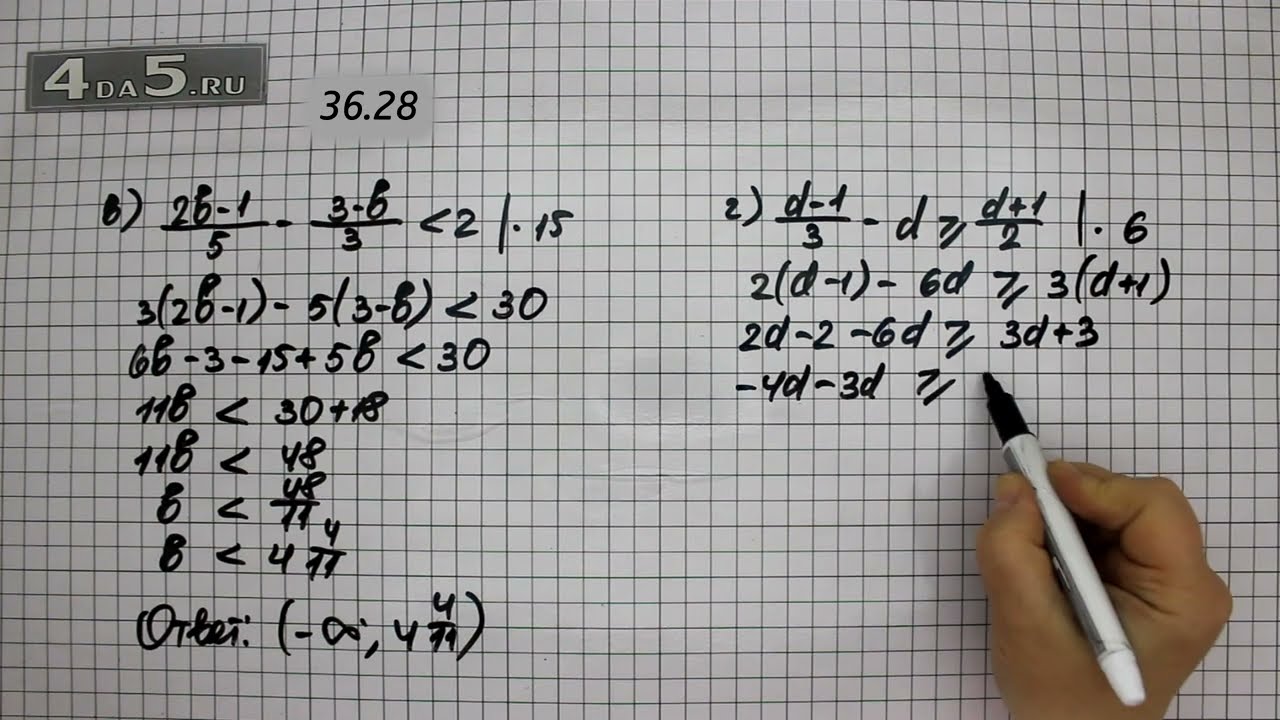 4DA5.RU
36.28
в) (2в-1)/5 - (3-в)/3 < 2 | · 15
3(2в-1) - 5(3-в) < 30
6в - 3 - 15 + 5в < 30
11в < 30 + 18
11в < 48
в < 48/11
в < 4 4/11
Ответ: (-∞; 4 4/11)
г) (d-1)/3 - d ⩾ (d+1)/2 | · 6
2(d-1) - 6d ⩾ 3(d+1)
2d - 2 - 6d ⩾ 3d + 3
-4d - 3d ⩾